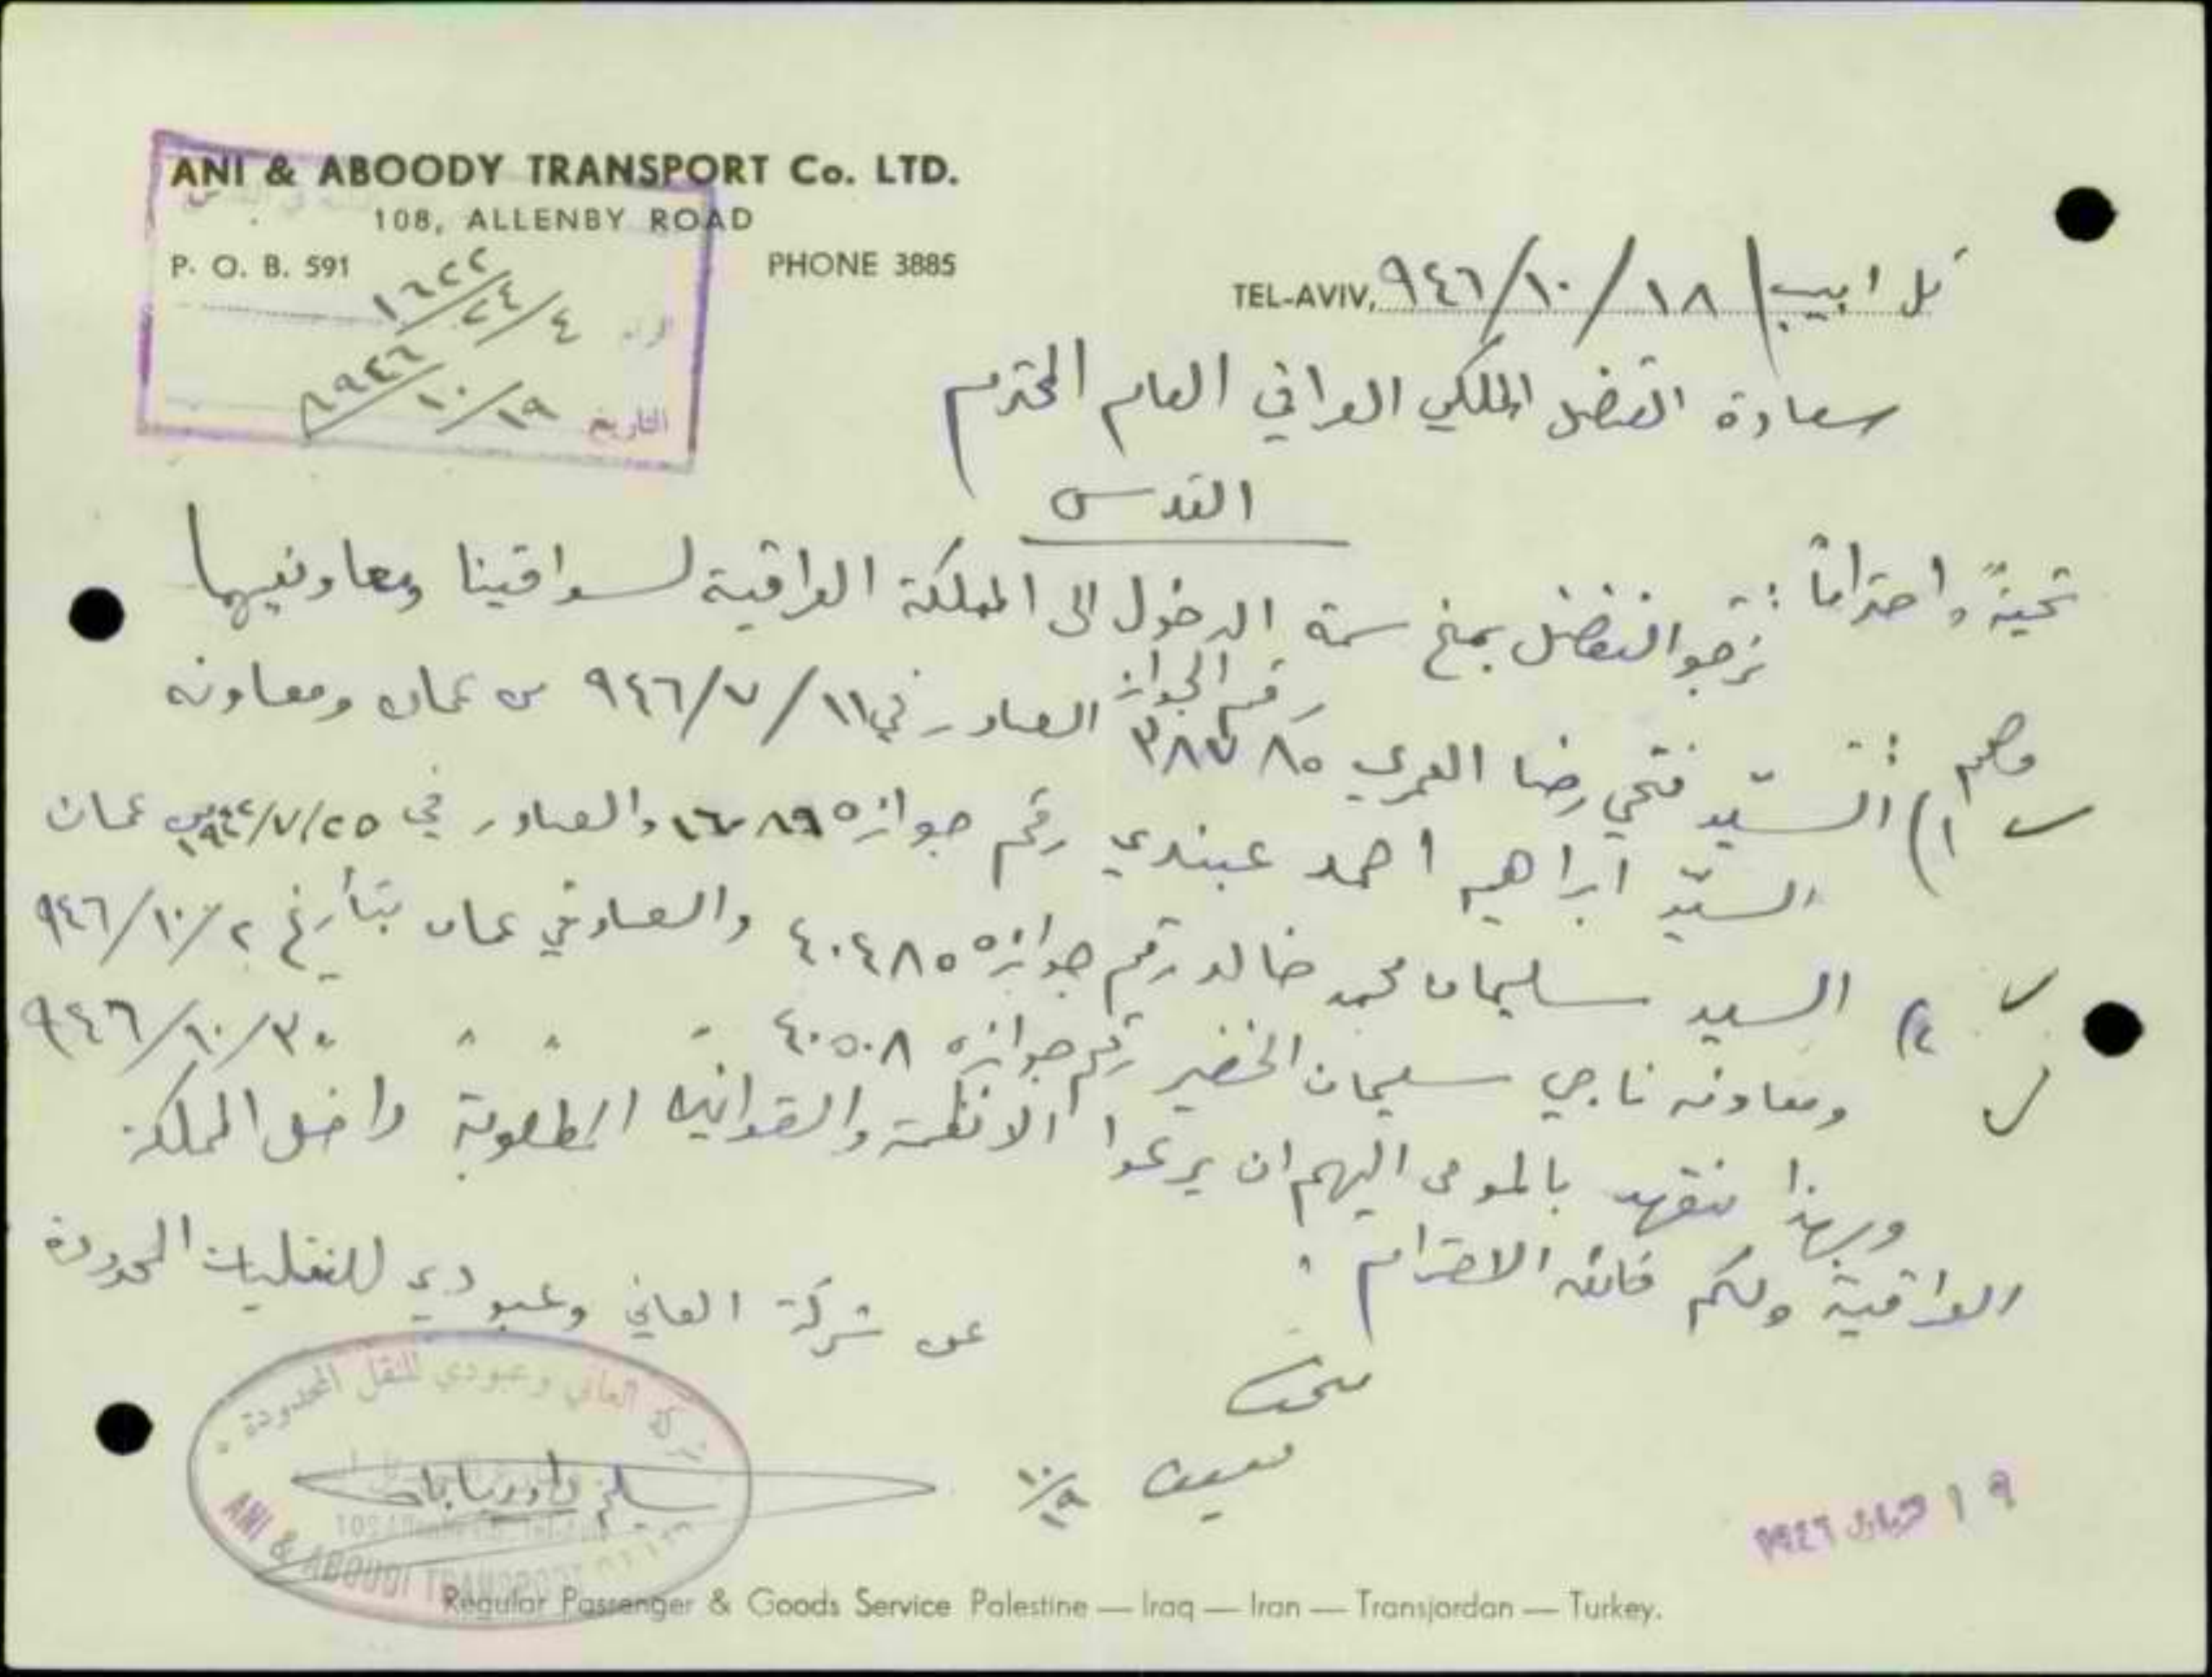 ANI & ABOODY TRANSPORT Co. LTD.
108, ALLENBY ROAD
P. O. B. 591
PHONE 3885
١٦٢٢
٢٤/٤
التاريخ ١٩/١٠/١٩٤٦
TEL-AVIV, تل ابيب / ١٨/١٠/٩٤٦
سعادة القنصل الملكي العراقي العام المحترم
القدس
تحيةً واحتراماً :
نرجو التفضل بمنح سمة الدخول الى المملكة العراقية لسواقينا ومعاونيهما
وهم :
١) السيّد فتحي رضا العمري رقم الجواز ٣٨٧٨٥ الصادر في ١١/٧/٩٤٦ من عمان ومعاونه
السيّد ابراهيم احمد عبندي رقم جوازه ١٦٧٨٩ والصادر في ٢٥/٧/ من عمان
٢) السيد سليمان محمد خالد رقم جوازه ٤٠٤٨٥ والصادر في عمان بتأريخ ٢/١٠/٩٤٦
ومعاونه ناجي سليمان الخضير رقم جوازه ٤٠٥٠٨ " " " " ٣/١٠/٩٤٦
وبهذا نتعهد بالمومى اليهم ان يرعوا الانظمة والقوانين المطلوبة داخل المملكة
العراقية ولكم فائق الاحترام .
عن شركة العاني وعبودي للنقليات المحدودة
شركة العاني وعبودي للنقل المحدودة
سليم داود
ANI & ABOUDI TRANSPORT
١٩/١٠
١٩ ١٩٤٦
Regular Passenger & Goods Service Palestine — Iraq — Iran — Transjordan — Turkey.